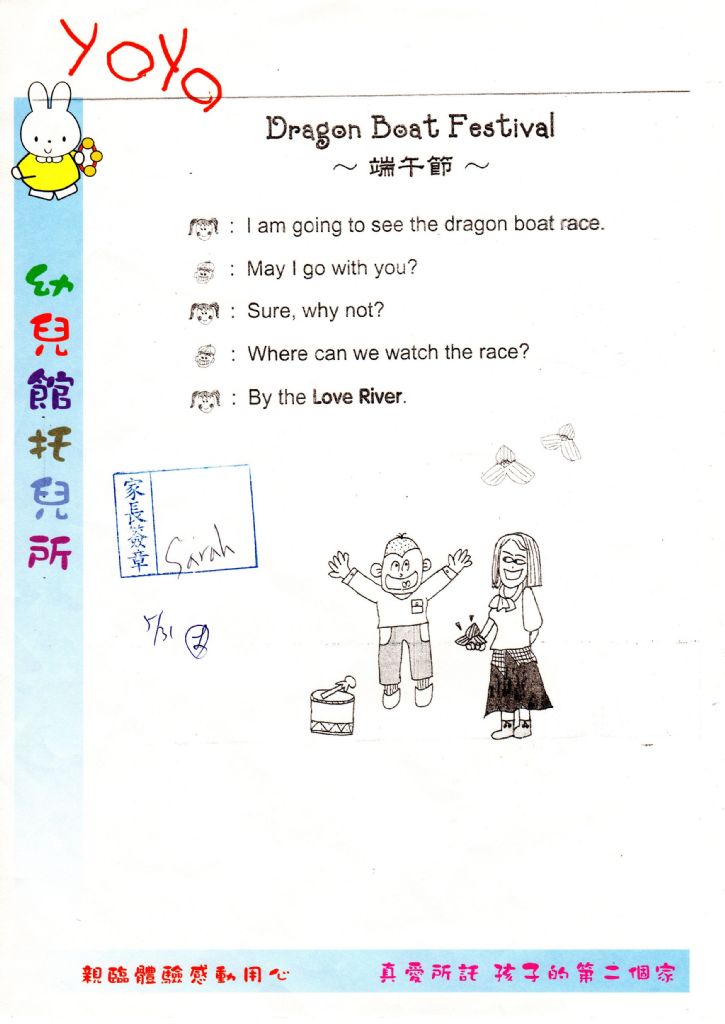 YoYo
Dragon Boat Festival
～ 端午節 ～
: I am going to see the dragon boat race.
: May I go with you?
: Sure, why not?
: Where can we watch the race?
: By the Love River.
幼兒館托兒所
家長簽章
Sarah
5/31
親臨體驗感動用心
真愛所託 孩子的第二個家